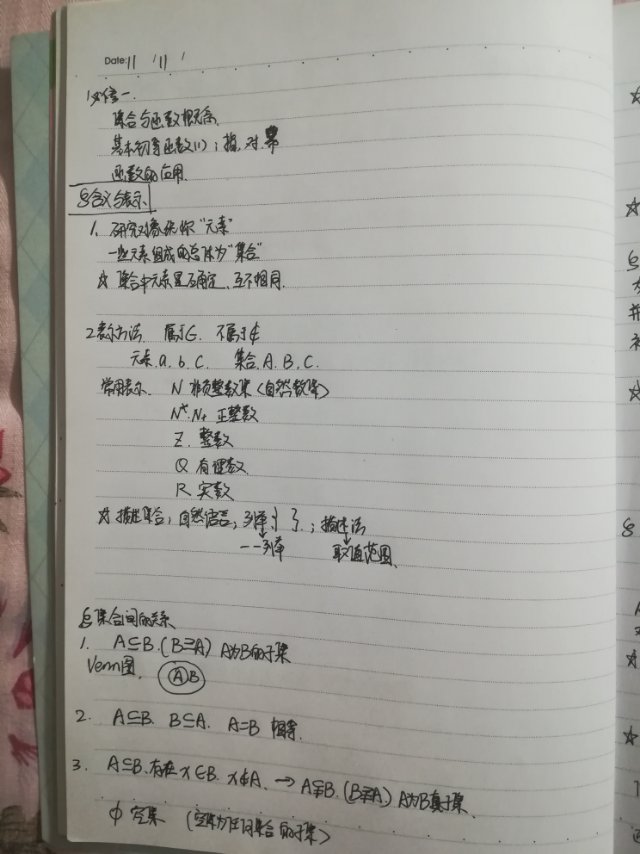 Date: 11 / 11 /
必修一.
集合与函数概念.
基本初等函数(1)；指.对.幂
函数的应用.
§含义与表示.
1. 研究对象统称"元素"
一些元素组成的总体为"集合"
☆ 集合中元素是否确定、互不相同.
2.表示方法. 属于∈. 不属于∉
元素.a.b.c. 集合.A.B.C.
常用表示. N 非负整数集(自然数集)
N*.N+ 正整数
Z. 整数
Q 有理数.
R 实数
☆ 描述集合；自然语言；列举{ }.；描述法
↓ ↓
一一列举 取值范围.
§集合间的关系
1. A⊆B.(B⊇A) A为B的子集
Venn图. A B
2. A⊆B. B⊆A. A=B 相等.
3. A⊆B.存在x∈B. x∉A. → A⫋B.(B⫌A) A为B真子集.
φ 空集 (空集为任何集合的子集)